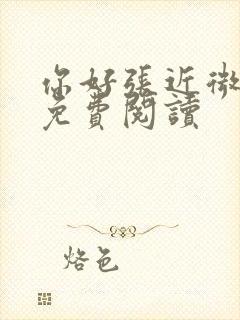 你好張近微
免費閱讀
烙色